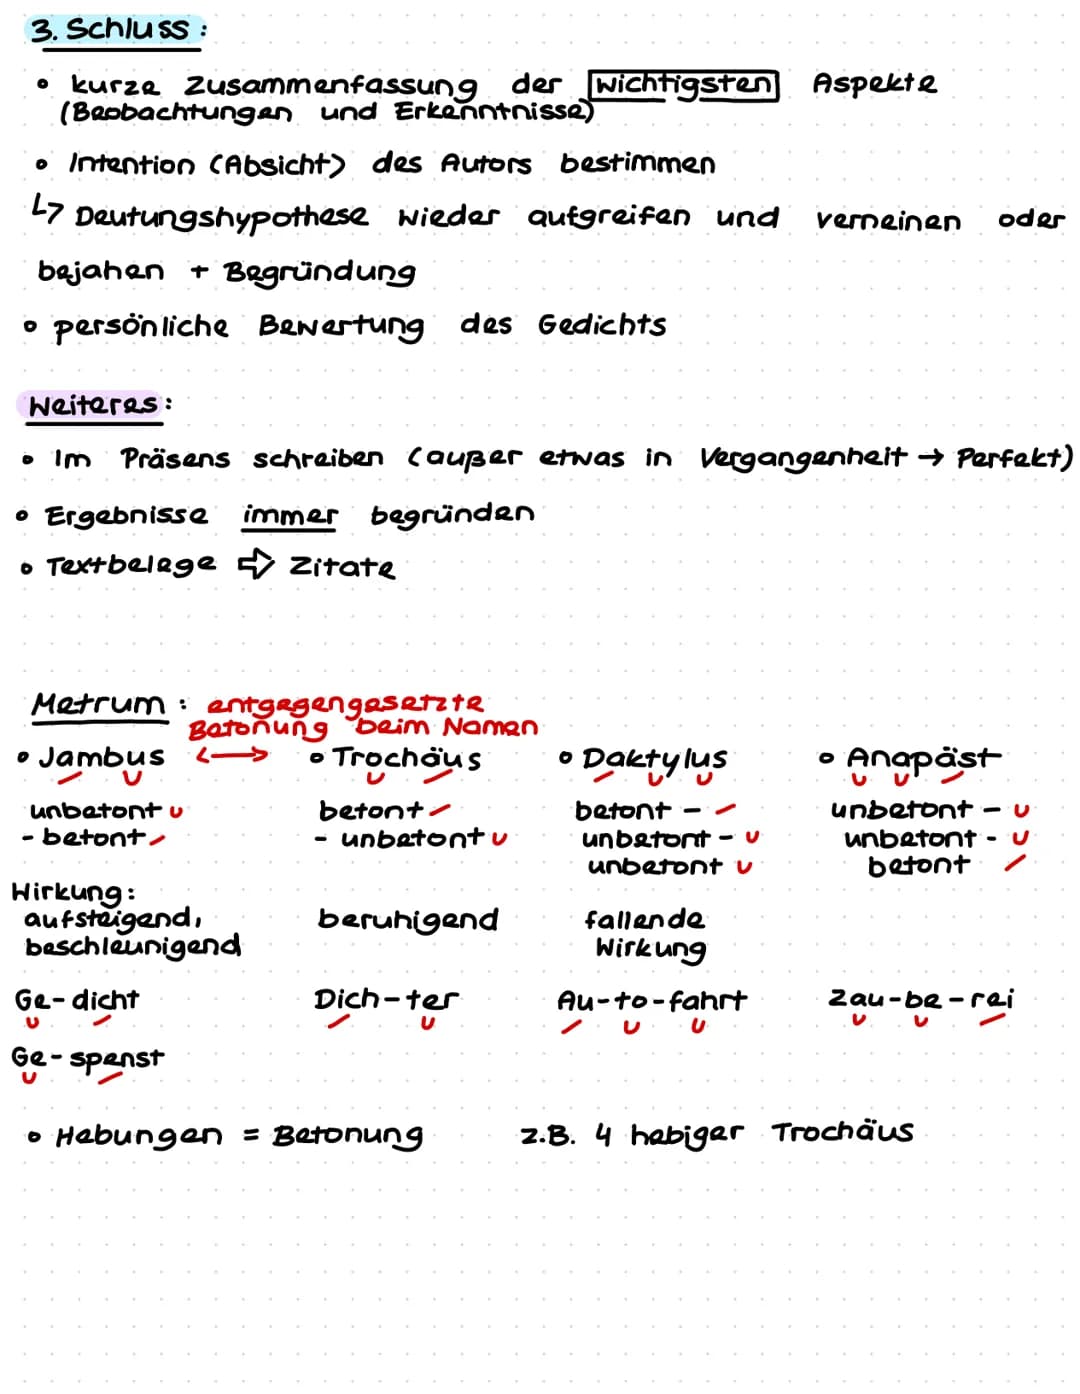 3. Schluss:
• kurze Zusammenfassung der wichtigsten Aspekte
(Beobachtungen und Erkenntnisse)
• Intention (Absicht) des Autors bestimmen
↳ Deutungshypothese wieder aufgreifen und verneinen oder
bejahen + Begründung
• persönliche Bewertung des Gedichts
Weiteres:
• Im Präsens schreiben (außer etwas in Vergangenheit → Perfekt)
• Ergebnisse immer begründen
• Textbelege ⇨ Zitate
Metrum: entgegengesetzte
Betonung beim Namen
• Jambus ↔ • Trochäus • Daktylus • Anapäst
unbetont ∪ betont / betont – / unbetont – ∪
- betont / - unbetont ∪ unbetont – ∪ unbetont - ∪
unbetont ∪ betont /
Wirkung:
aufsteigend, beruhigend fallende
beschleunigend Wirkung
Ge-dicht Dich-ter Au-to-fahrt Zau-be-rei
Ge-spenst
• Hebungen = Betonung z.B. 4 hebiger Trochäus